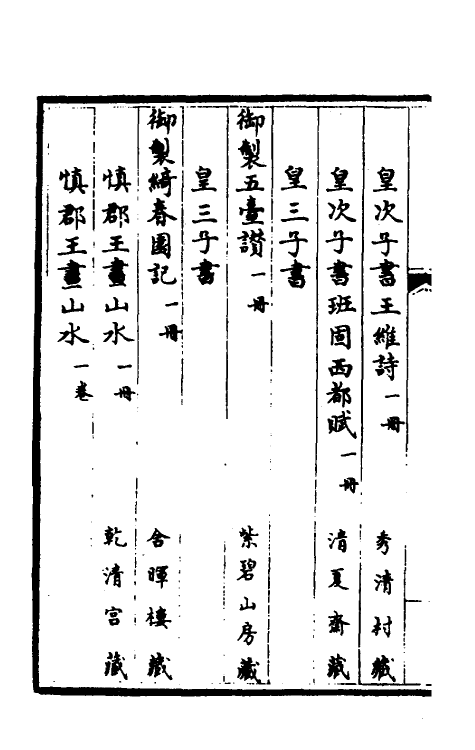 皇次子書王維詩一冊 秀清村藏
皇次子書班固西都賦一冊 清夏齋藏
皇三子書
御製五臺讚一冊 紫碧山房藏
皇三子書
御製綺春園記一冊 含暉樓藏
慎郡王畫山水一冊 乾清宮藏
慎郡王畫山水一卷